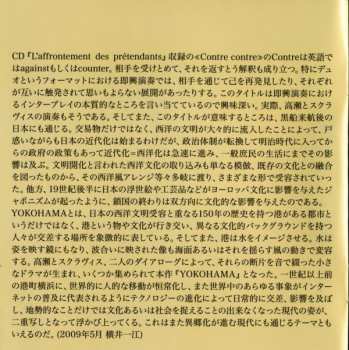 CD『L'affrontement des prétendants』収録の≪Contre contre≫のContreは英語で
はagainstもしくはcounter。相手を受けとめて、それを返すとう解釈も成り立つ。特にデュ
オというフォーマットにおける即興演奏では、相手を通じて己を再発見したり、それぞれ
が互いに触発されて思いもよらない展開があったりする。このタイトルは即興演奏におけ
るインタープレイの本質的なところを言い当てているので興味深い。実際、高瀬とスクラ
ヴィスの演奏もそうである。そしてまた、このタイトルが意味するところは、黒船来航後の
日本にも通じる。交易物だけではなく、西洋の文明が人々的に流入したことによって、戸
惑いながらも日本の近代化は始まるわけだが、政治体制が転換して明治時代に入ってか
らの政府の政策もあって近代化=西洋化は急速に進み、一般庶民の生活にまでその影
響は及ぶ。文明開化と言われた西洋文化の取り込みも単なる模倣、既存の文化との融合
を図ったものから、その西洋風アレンジ等々多岐に渡り、さまざまな形で受容されていっ
た。他方、19世紀後半に日本の浮世絵や工芸品などがヨーロッパ文化に影響を与えたジ
ャポニズムが起ったように、鎖国の終わりは双方向に文化的な影響を与えたのである。
YOKOHAMAとは、日本の西洋文明受容と重なる150年の歴史を持つ港がある都市と
いうだけではなく、港という物や文化が行き交い、異なる文化的バックグラウンドを持つ
人々が交差する場所を象徴的に表している。そしてまた、港は水をイメージさせる。水は
姿を映す鏡にもなり、波合いに映された像も海面あるいはそれを揺らす風の動きで変容
する。高瀬とスクラヴィス、二人のダイアローグによって、それらの断片を音で綴った小さ
なドラマが生まれ、いくつか集められて本作『YOKOHAMA』となった。一世紀以上前
の港町横浜に、世界的に人的な移動が恒常化し、また世界中のあらゆる事象がインター
ネットの普及に代表されるようにテクノロジーの進化によって日常的に交差、影響を及ぼ
し、地勢的なことだけでは文化あるいは社会を捉えることの出来なくなった現代の姿が、
二重写しとなって浮かび上ってくる。これはまた異郷化が進む現代にも通じるテーマとも
いえるのだ。(2009年5月 横井一江)